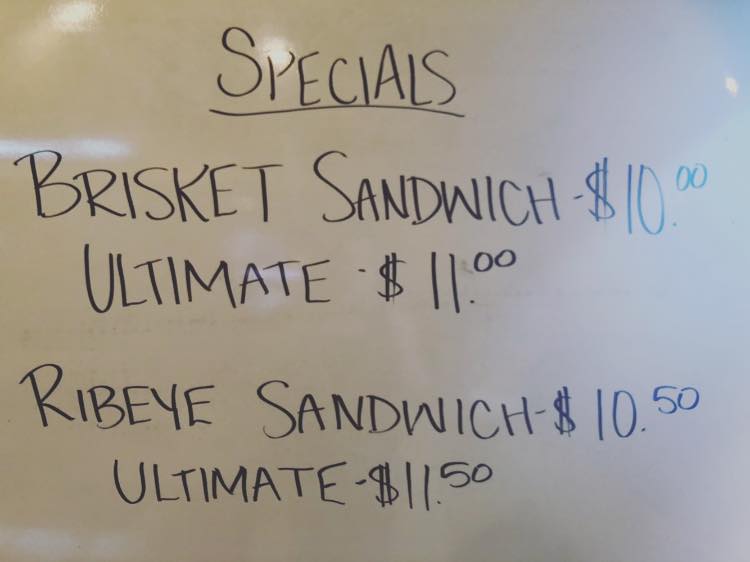 SPECIALS
BRISKET SANDWICH-$10.00
ULTIMATE-$11.00
RIBEYE SANDWICH-$10.50
ULTIMATE-$11.50